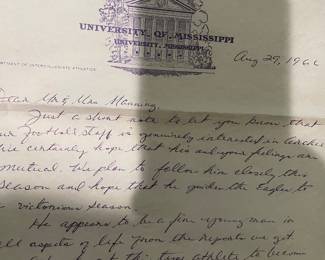 UNIVERSITY OF MISSISSIPPI
UNIVERSITY, MISSISSIPPI
DEPARTMENT OF INTERCOLLEGIATE ATHLETICS
Aug 29, 1966
Dear Mr & Mrs Manning,
Just a short note to let you know that
our Football Staff is genuinely interested in Archie
We certainly hope that his and your feelings are
mutual. We plan to follow him closely this
season and hope that he guides the Eagles to
a victorious season.
He appears to be a fine young man in
all aspects of life from the reports we get.
this type athlete to become